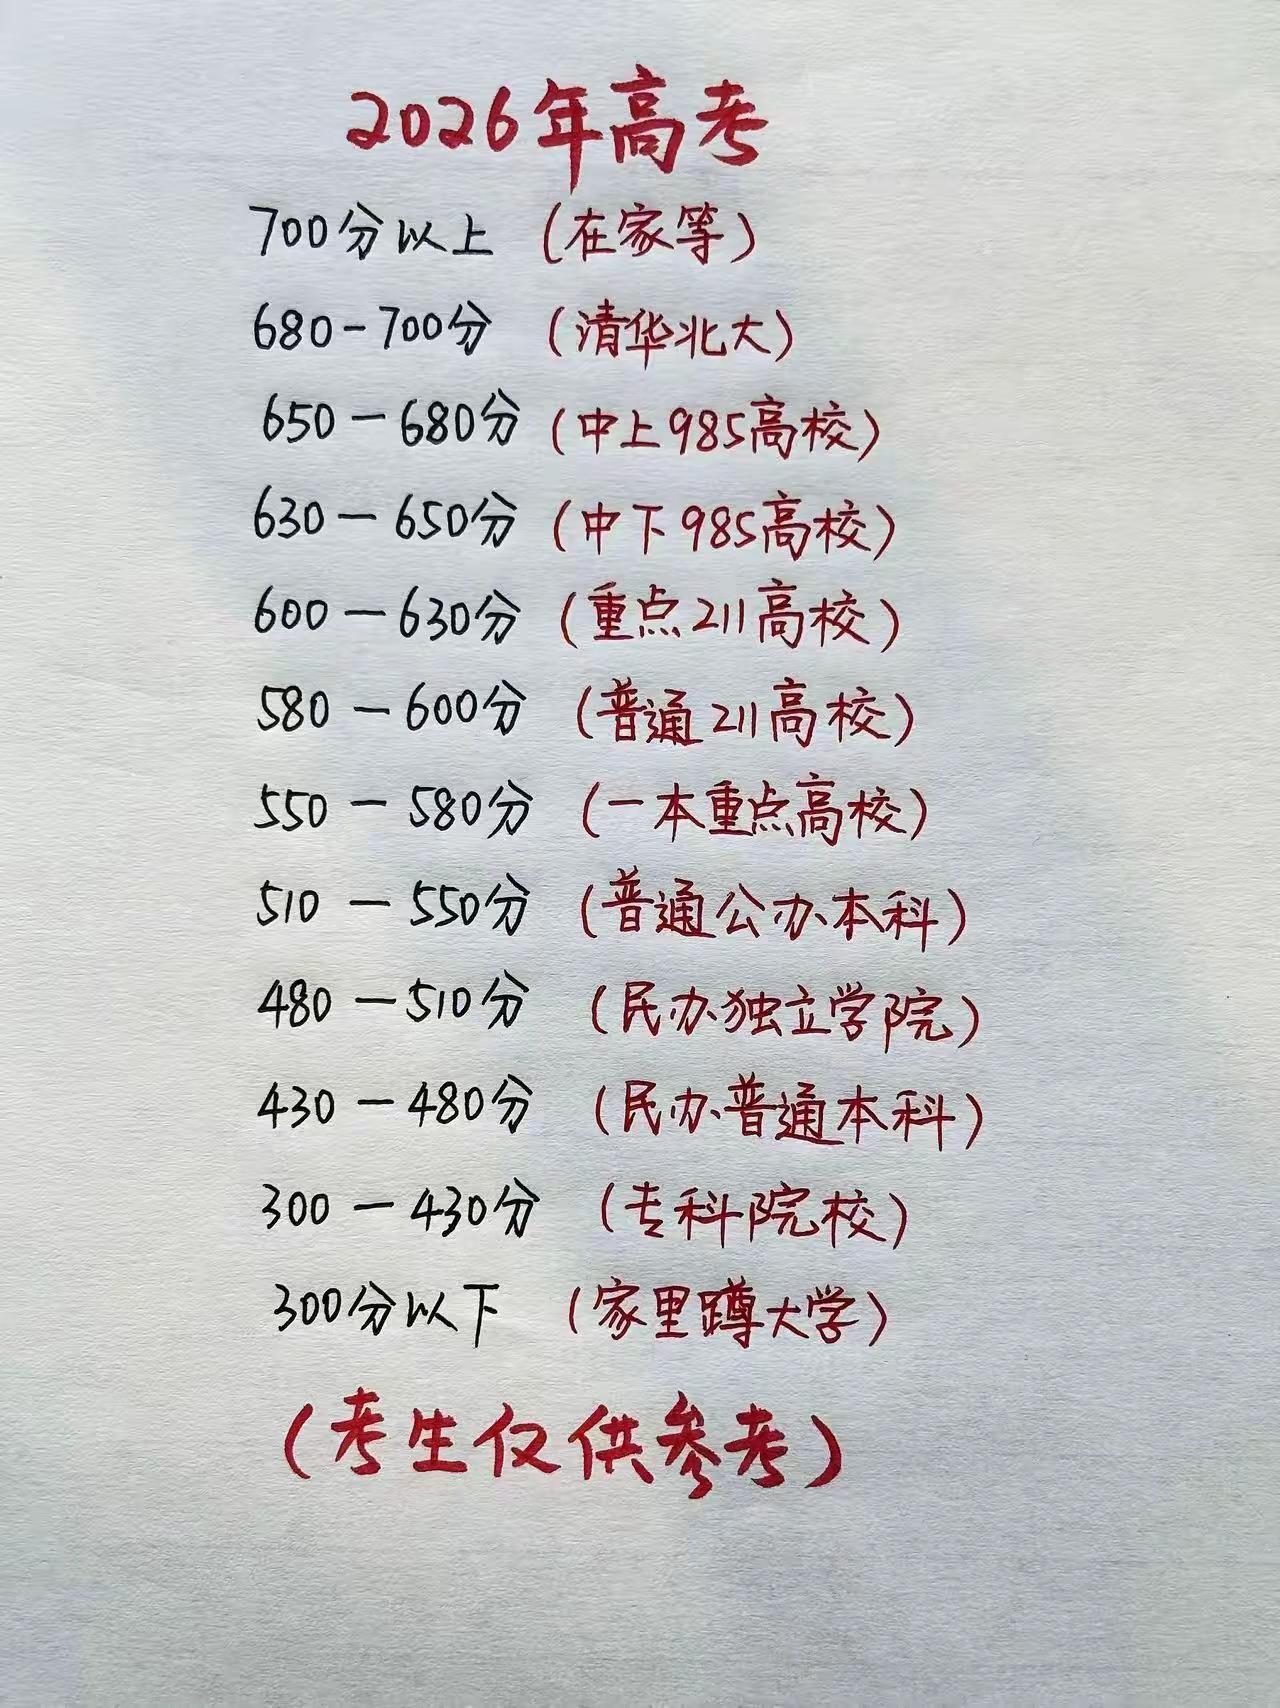 2026年高考
700分以上 (在家等)
680-700分 (清华北大)
650-680分 (中上985高校)
630-650分 (中下985高校)
600-630分 (重点211高校)
580-600分 (普通211高校)
550-580分 (一本重点高校)
510-550分 (普通公办本科)
480-510分 (民办独立学院)
430-480分 (民办普通本科)
300-430分 (专科院校)
300分以下 (家里蹲大学)
(考生仅供参考)